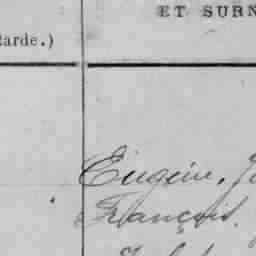 ET SURN
tarde.)
Eugène, J
François.